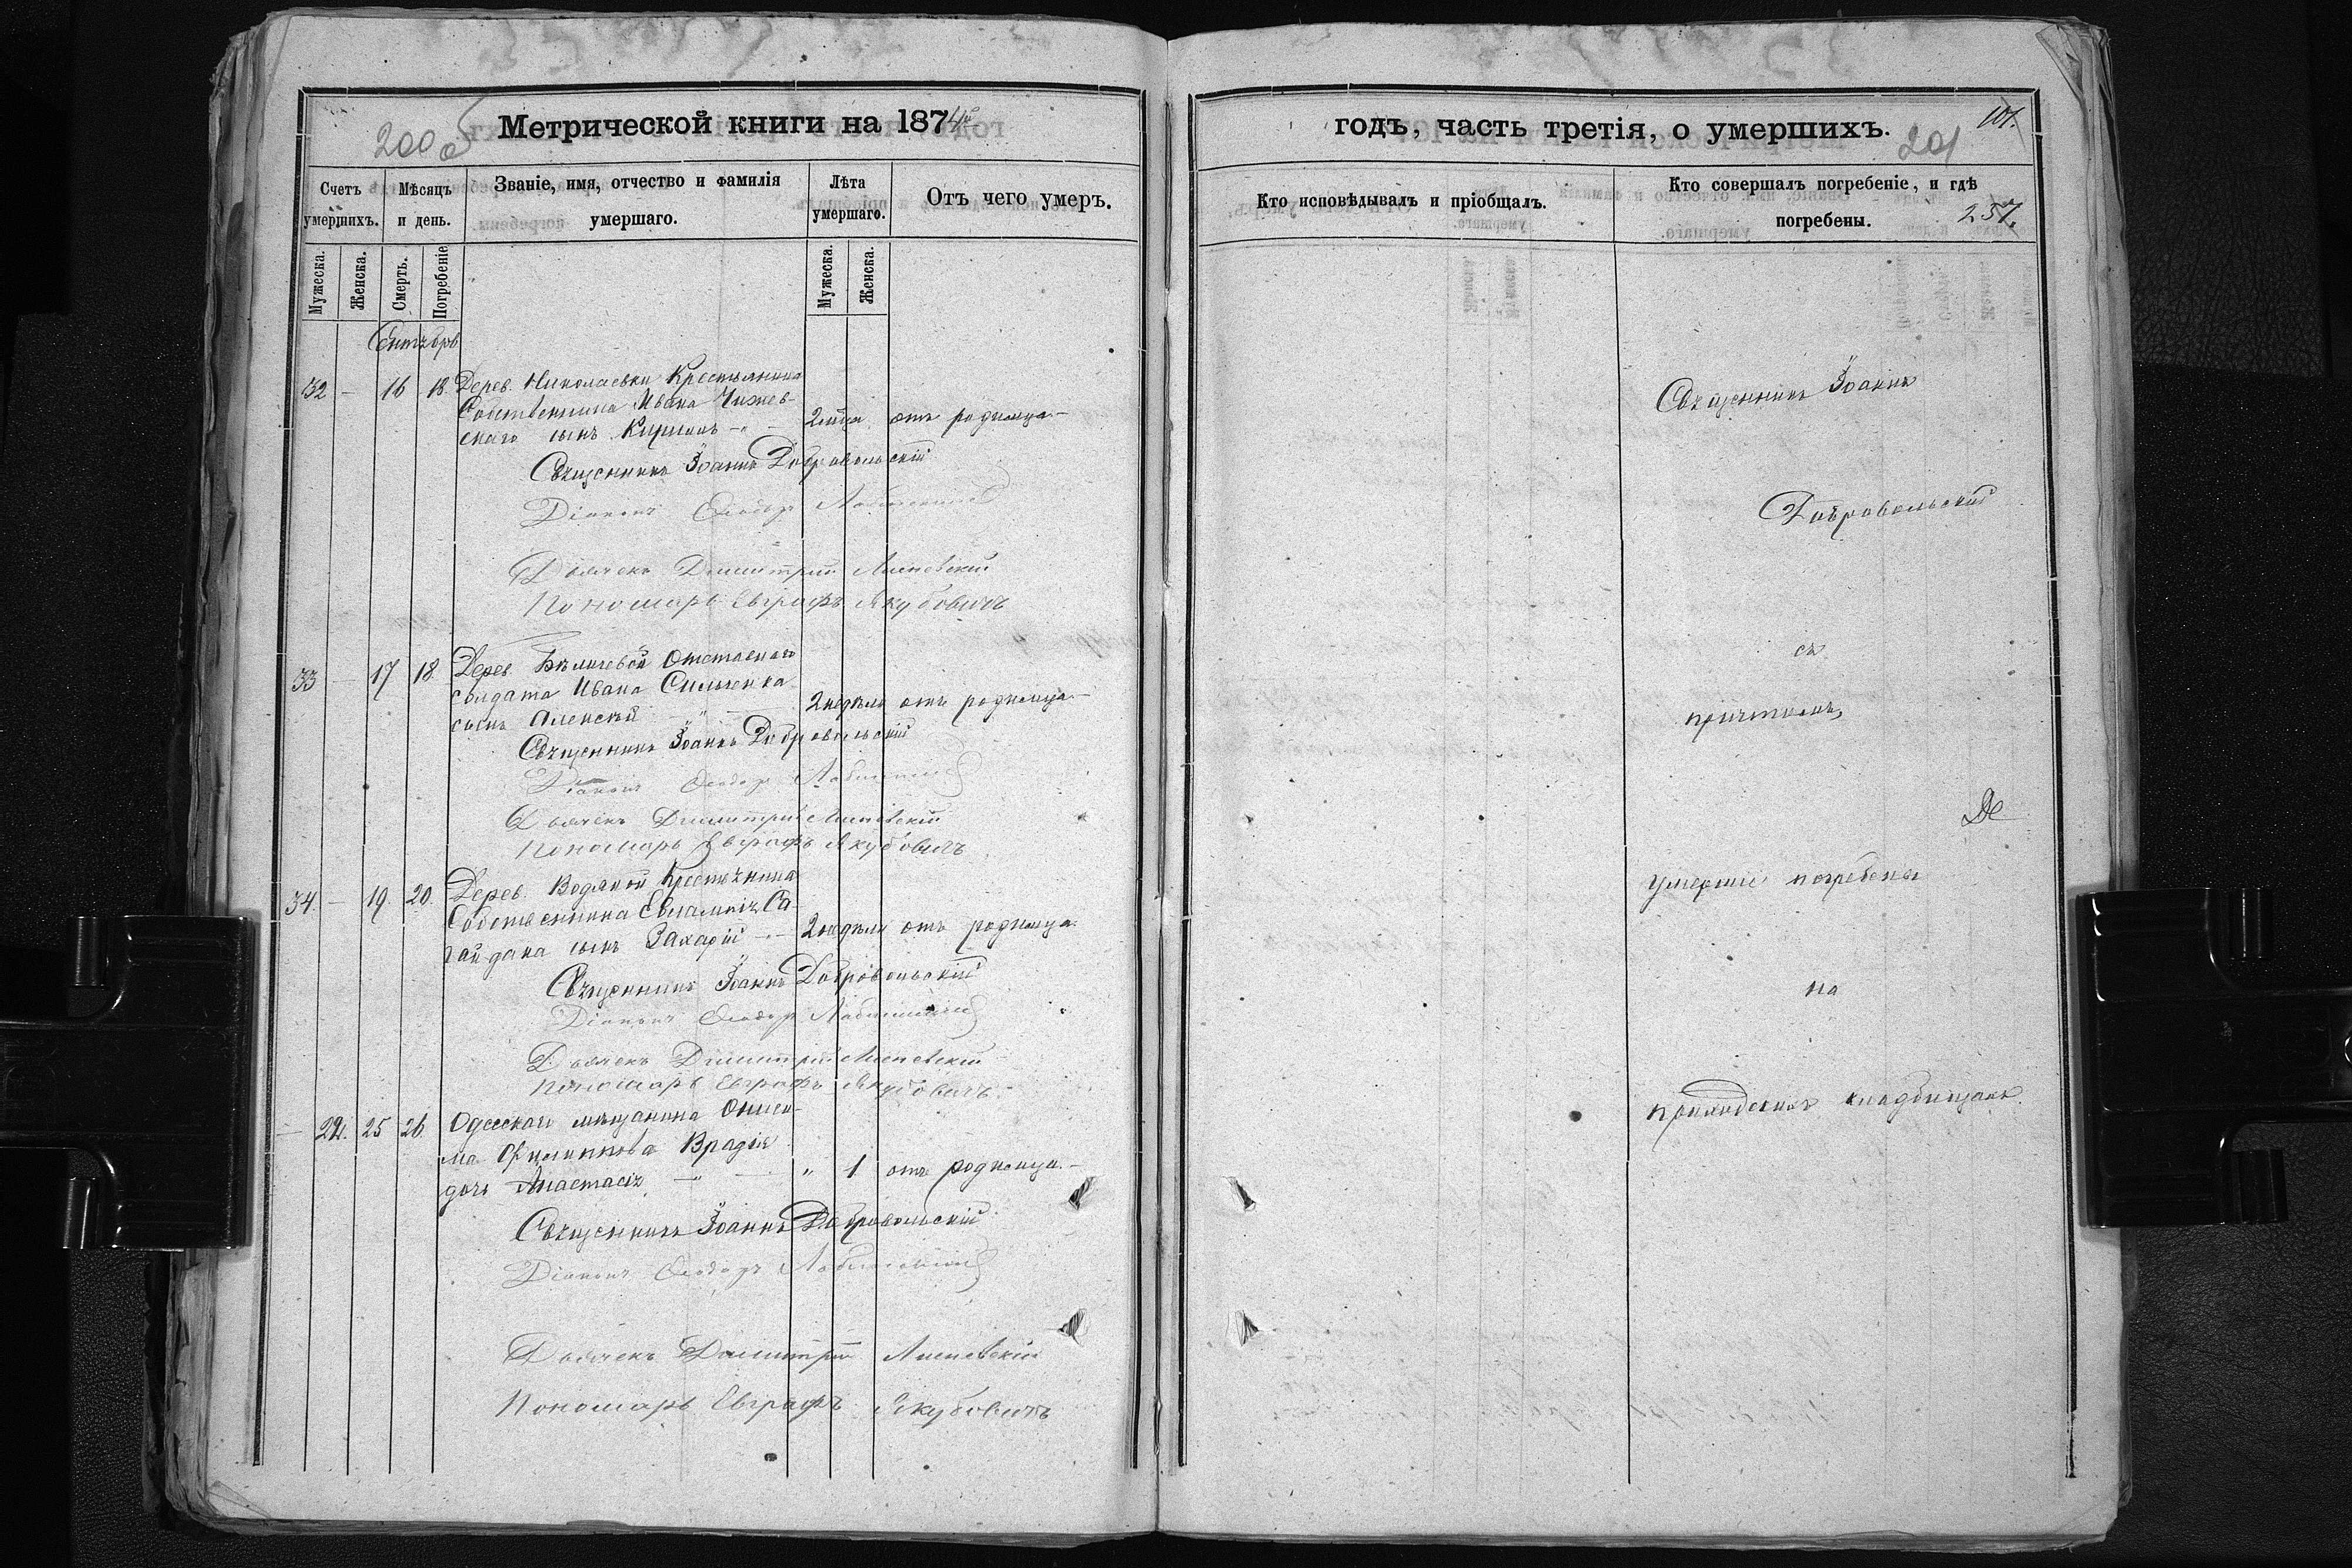 200 об
Метрической книги на 1874й
Счетъ умершихъ.
Мѣсяцъ и день.
Званіе, имя, отчество и фамилія умершаго.
Лѣта умершаго.
Отъ чего умеръ.
Мужеска.
Женска.
Смерть.
Погребеніе
Мужеска.
Женска.
Сентябрь
32 — 16 18. Дерев. Николаевки Крестьянина
Собственника Ивана Чижев-
скаго сынъ Кириллъ — 2 мѣс. отъ родимца —
Священникъ Іоаннъ Добровольскій
Діаконъ Ѳеодоръ
Дьячекъ Димитрій Липевскій
Пономарь Евграфъ Якубовичъ
33 — 17 18. Дерев. Отставнаго
солдата Ивана Сильченка
сынъ Алексѣй — 2 недѣли отъ родимца —
Священникъ Іоаннъ Добровольскій
Діаконъ Ѳеодоръ
Дьячекъ Димитрій Липевскій
Пономарь Евграфъ Якубовичъ
34. — 19 20. Дерев. Водяной Крестьянина
Собственника Евлампія Са-
гайдака сынъ Захарій — 2 недѣли отъ родимца
Священникъ Іоаннъ Добровольскій
Діаконъ Ѳеодоръ
Дьячекъ Димитрій Липевскій
Пономарь Евграфъ Якубовичъ
— 22. 25 26. Одесскаго мѣщанина Ониси-
ма Филиппова Врадія
дочь Анастасія — " 1 отъ родимца —
Священникъ Іоаннъ Добровольскій
Діаконъ Ѳеодоръ
Дьячекъ Димитрій Липевскій
Пономарь Евграфъ Якубовичъ
годъ, часть третія, о умершихъ.
101.
201
Кто исповѣдывалъ и пріобщалъ.
Кто совершалъ погребеніе, и гдѣ
погребены.
257.
Священникъ Іоаннъ
Добровольскій
съ
причтомъ,
Умершіе погребены
на
приходскомъ кладбищахъ